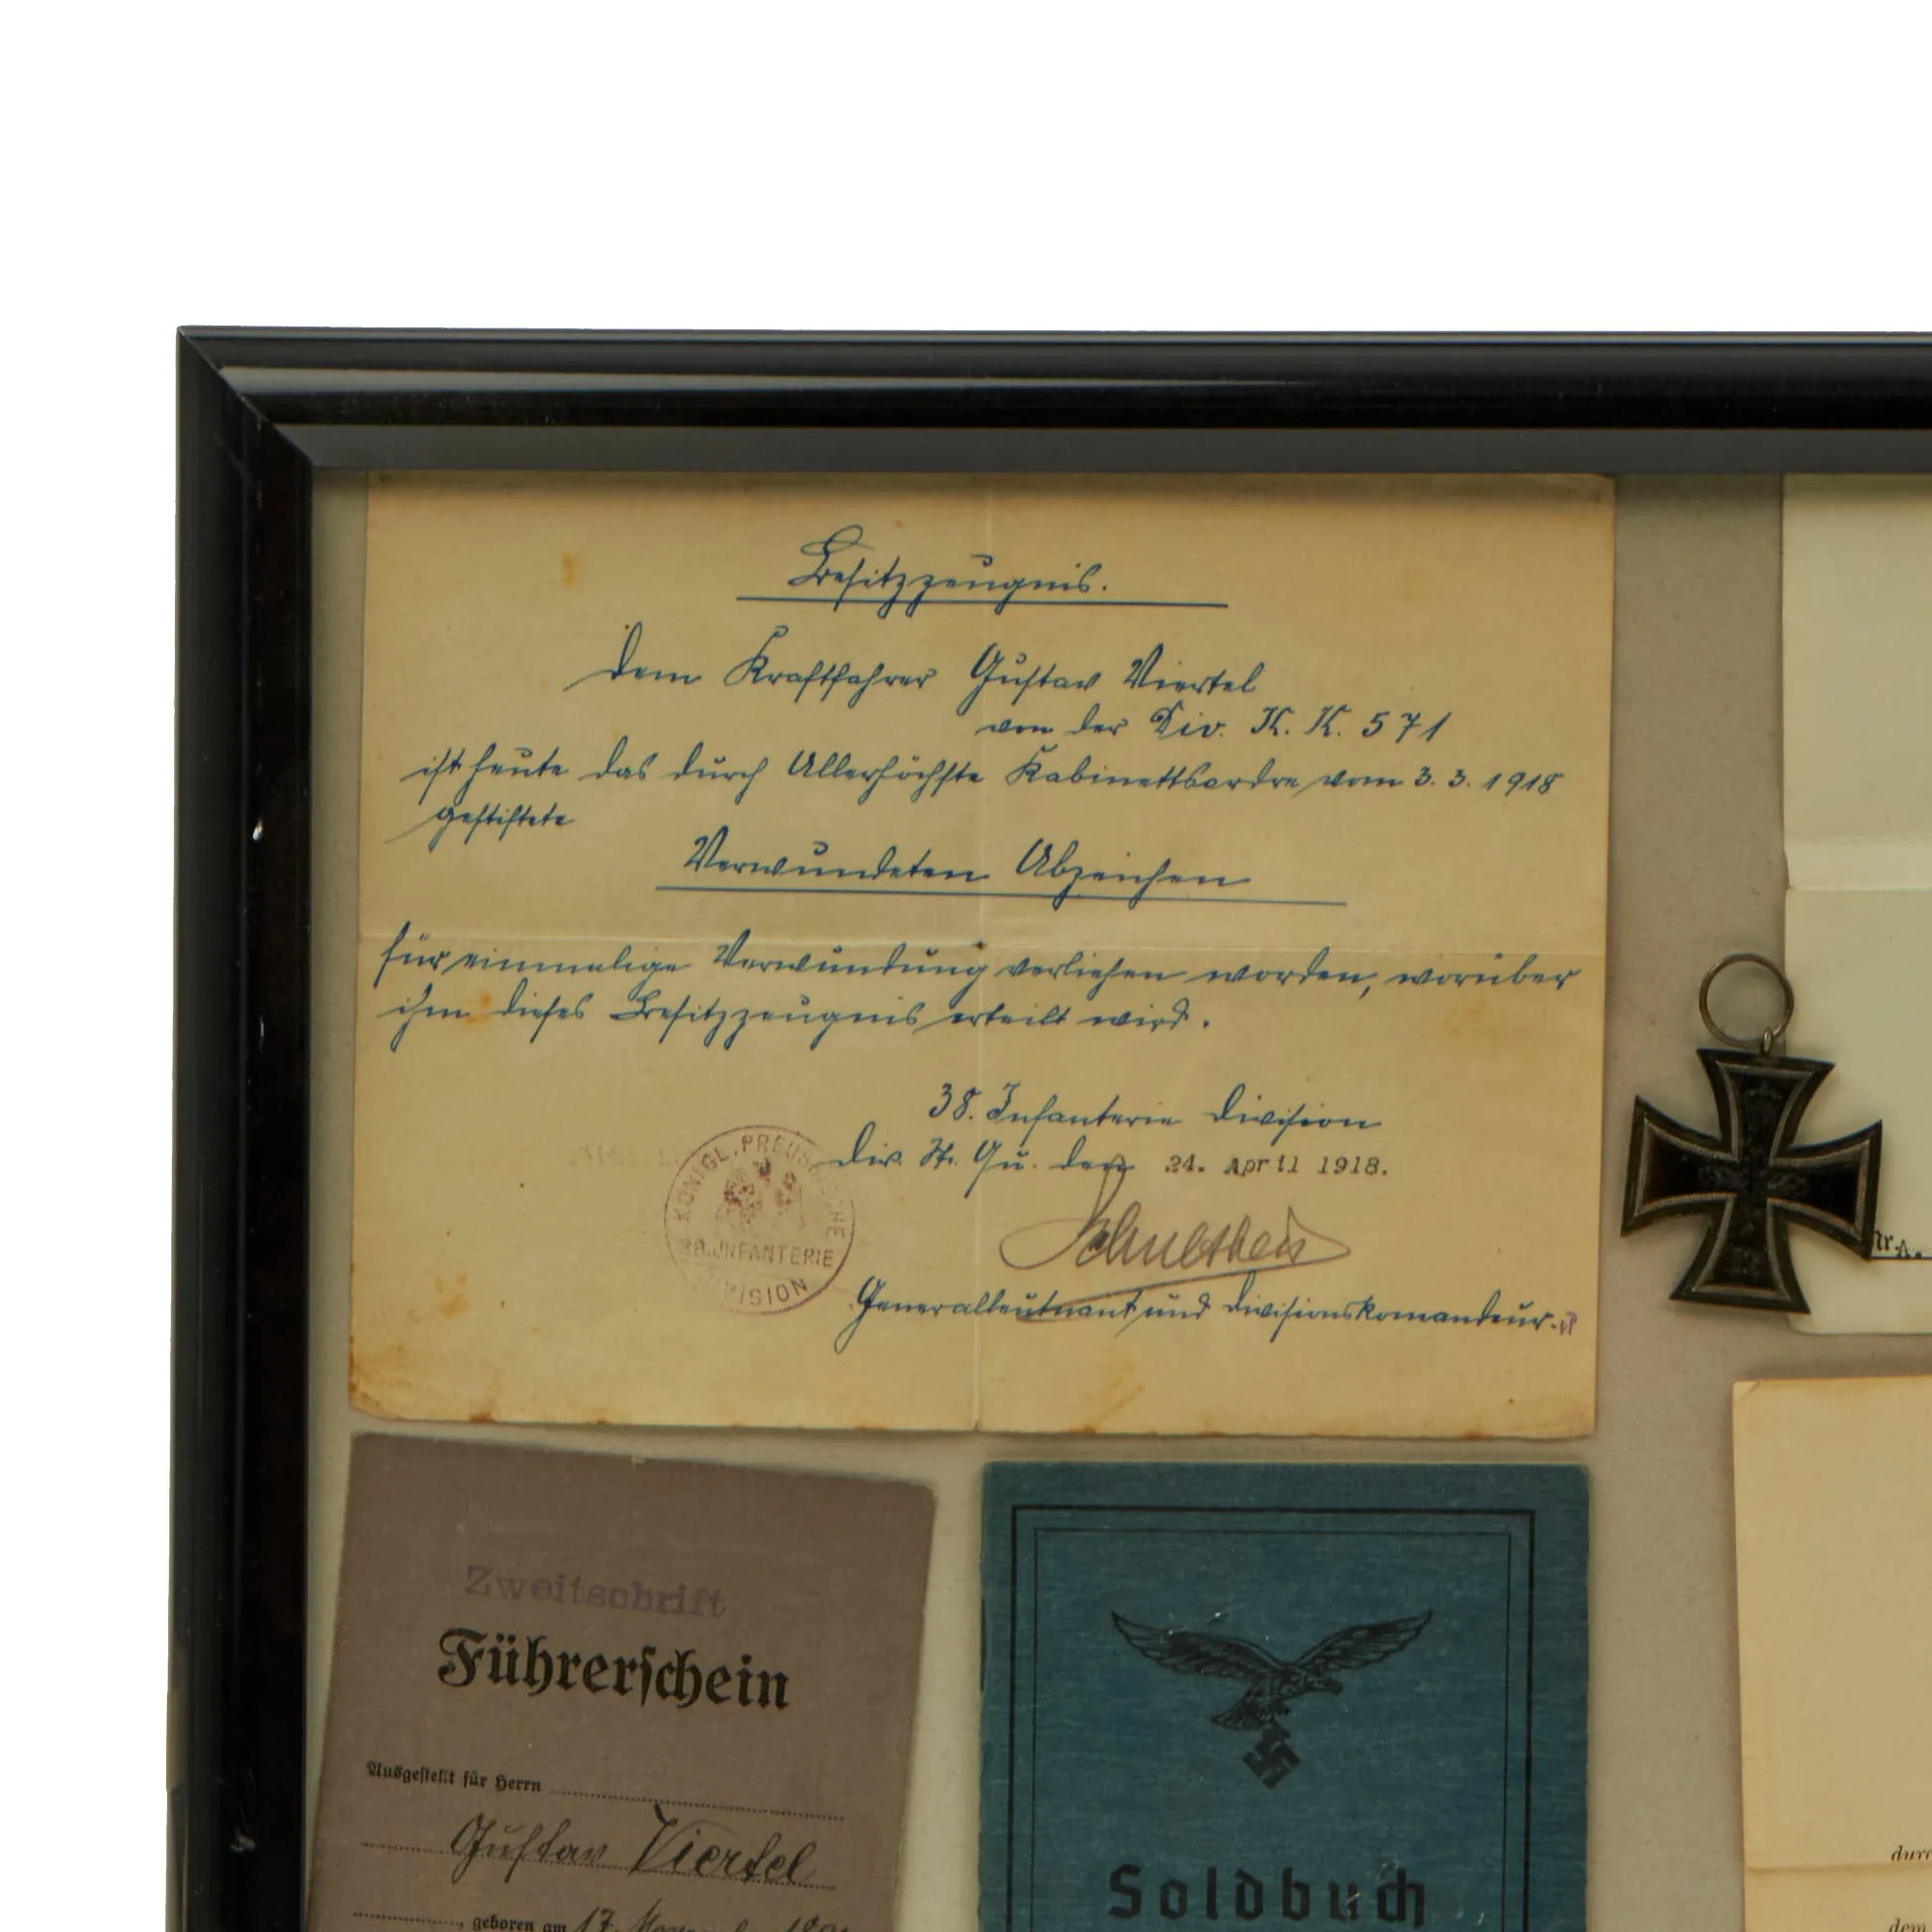 Besitzzeugnis.
Dem Kraftfahrer Gustav Viertel
von der Div. K. K. 571
ist heute das durch Allerhöchste Kabinettsordre vom 3. 3. 1918
gestiftete
Verwundeten Abzeichen
für einmalige Verwundung verliehen worden, worüber
ihm dieses Besitzzeugnis erteilt wird.
38. Infanterie Division
Div. St. Qu. den 24. April 1918.
KÖNIGL. PREUSSISCHE
38. INFANTERIE
DIVISION
Schultheis
Generalleutnant und Divisionskomandeur.
Zweitschrift
Führerschein
Ausgestellt für Herrn
Gustav Viertel
, geboren am 17.
Soldbuch
Nr.
durc
dem